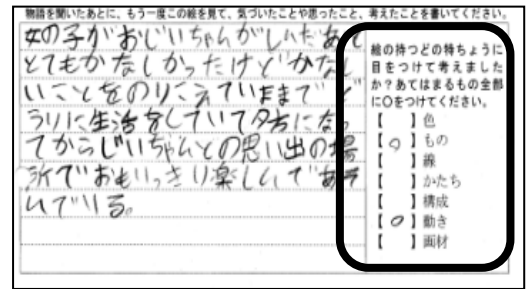 物語を聞いたあとに、もう一度この絵を見て、気づいたことや思ったこと、考えたことを書いてください。
女の子がおじいちゃんがしんだあと
とてもかなしかったけどかなし
いことをのりこえていままでど
うりに生活をしていて夕方になっ
てからじいちゃんとの思い出の場
所でおもいっきり楽しんであそ
んでいる。
絵の持つどの特ちょうに
目をつけて考えました
か？あてはまるもの全部
に○をつけてください。
【　】色
【○】もの
【　】線
【　】かたち
【　】構成
【○】動き
【　】画材